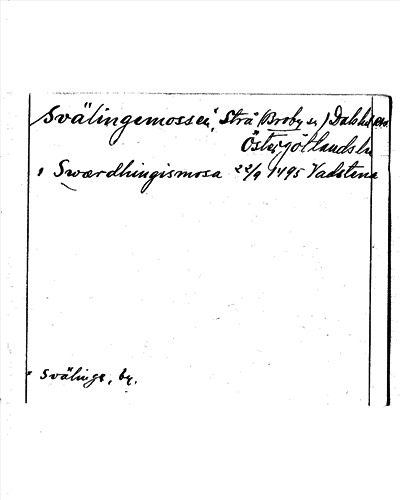 Svälingemossen, Strå (Broby sn) Dals hd
Östergötlands län
Swærdhingismosa 22/9 1495 Vadstena
Svälinge, by.